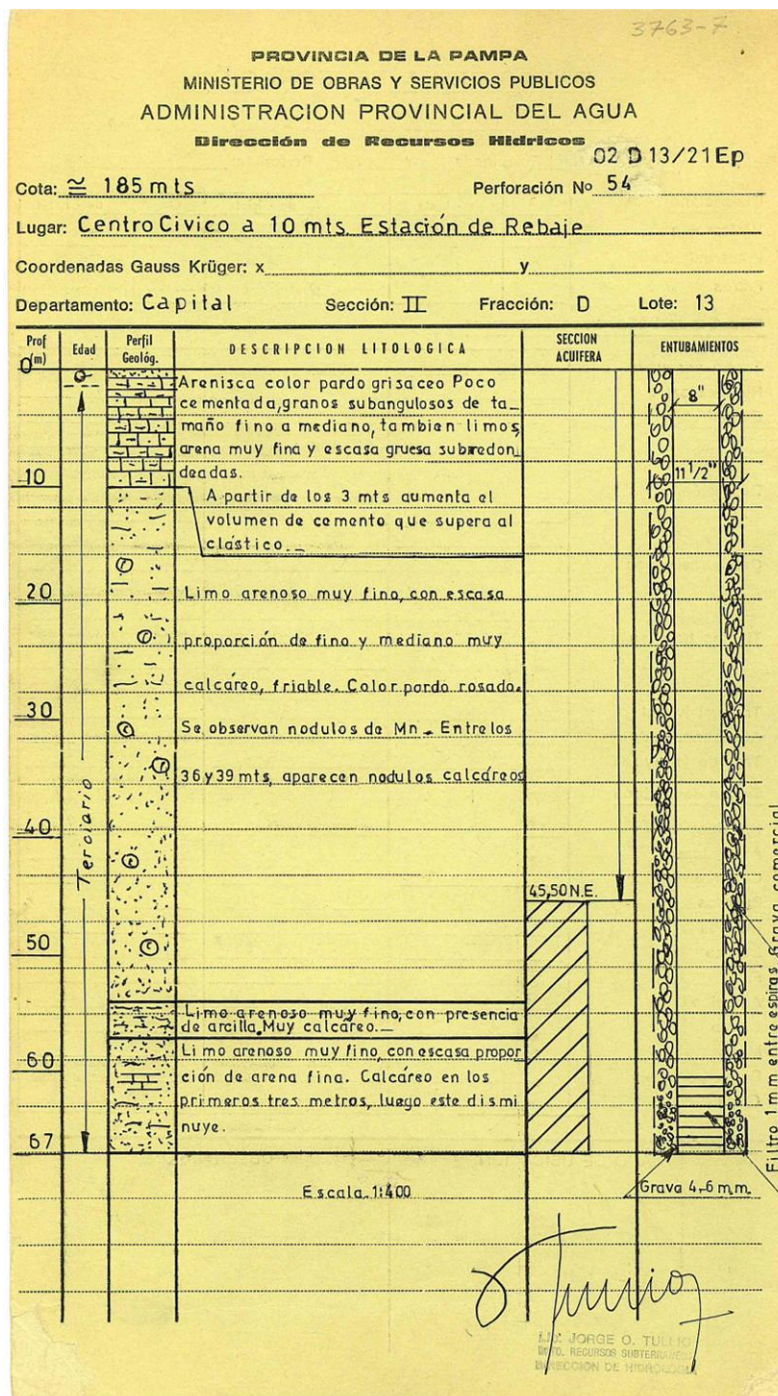 3763-7
PROVINCIA DE LA PAMPA
MINISTERIO DE OBRAS Y SERVICIOS PUBLICOS
ADMINISTRACION PROVINCIAL DEL AGUA
Dirección de Recursos Hídricos
02 D 13/21 Ep
Cota: ≅ 185 mts Perforación Nº 54
Lugar: Centro Civico a 10 mts Estación de Rebaje
Coordenadas Gauss Krüger: x y
Departamento: Capital Sección: II Fracción: D Lote: 13
Prof (m) Edad Perfil Geológ. DESCRIPCION LITOLOGICA SECCION ACUIFERA ENTUBAMIENTOS
0
Q
Arenisca color pardo grisaceo Poco
cementada, granos subangulosos de ta_
maño fino a mediano, tambien limos,
arena muy fina y escasa gruesa subredon
deadas.
8"
11 1/2"
10
A partir de los 3 mts aumenta el
volumen de cemento que supera al
clástico._
20
Limo arenoso muy fino, con escasa
proporción de fino y mediano muy
calcáreo, friable. Color pardo rosado.
30
Se observan nodulos de Mn_ Entre los
36 y 39 mts, aparecen nodulos calcáreos
Terciario
40
45,50 N.E.
50
Limo arenoso muy fino, con presencia
de arcilla. Muy calcáreo._
60
Limo arenoso muy fino, con escasa propor
ción de arena fina. Calcáreo en los
primeros tres metros, luego este dismi
nuye.
67
Filtro 1 mm entre espiras Grava comercial
Grava 4-6 m.m.
Escala 1:400
LIC. JORGE O. TULLIO
DPTO. RECURSOS SUBTERRANEOS
DIRECCION DE HIDROLOGIA